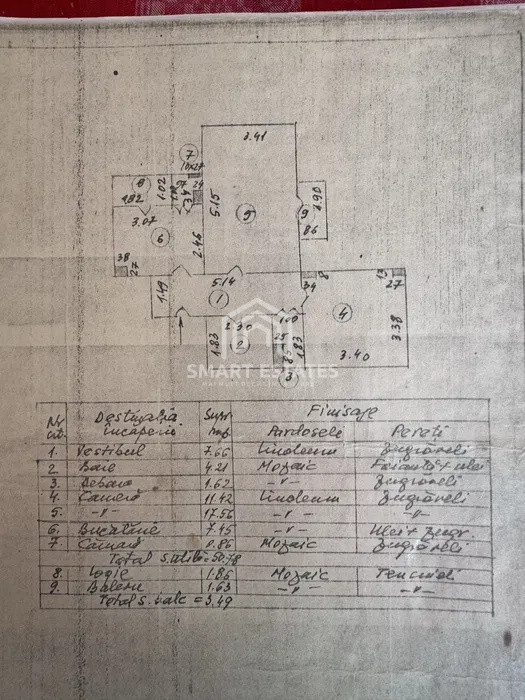 3.41
7
10x27
8
1.02
24
1.32
5.15
9
1.90
3.07
5
86
6
2.46
38
27
5.14
8
13
1.49
34
27
1
4
2.30
1.00
1.83
2
25
1.83
3.38
85
3.40
3
SMART ESTATES
Nr crt. Destinația încăperii Supr. Finisaje
Pardoseli Pereți
1. Vestibul 7.66 Linoleum Zugrăveli
2 Baie 4.21 Mozaic Faianță + ulei
3. Debara 1.62 -"- Zugrăveli
4. Cameră 11.42 Linoleum Zugrăveli
5. -"- 17.56 -"- -"-
6. Bucătărie 7.45 -"- Ulei + zugr.
7. Cămară 0.86 Mozaic Zugrăveli
Total s. utilă = 50.78
8. Logie 1.86 Mozaic Tencuieli
9. Balcon 1.63 -"- -"-
Total s. balc = 3.49